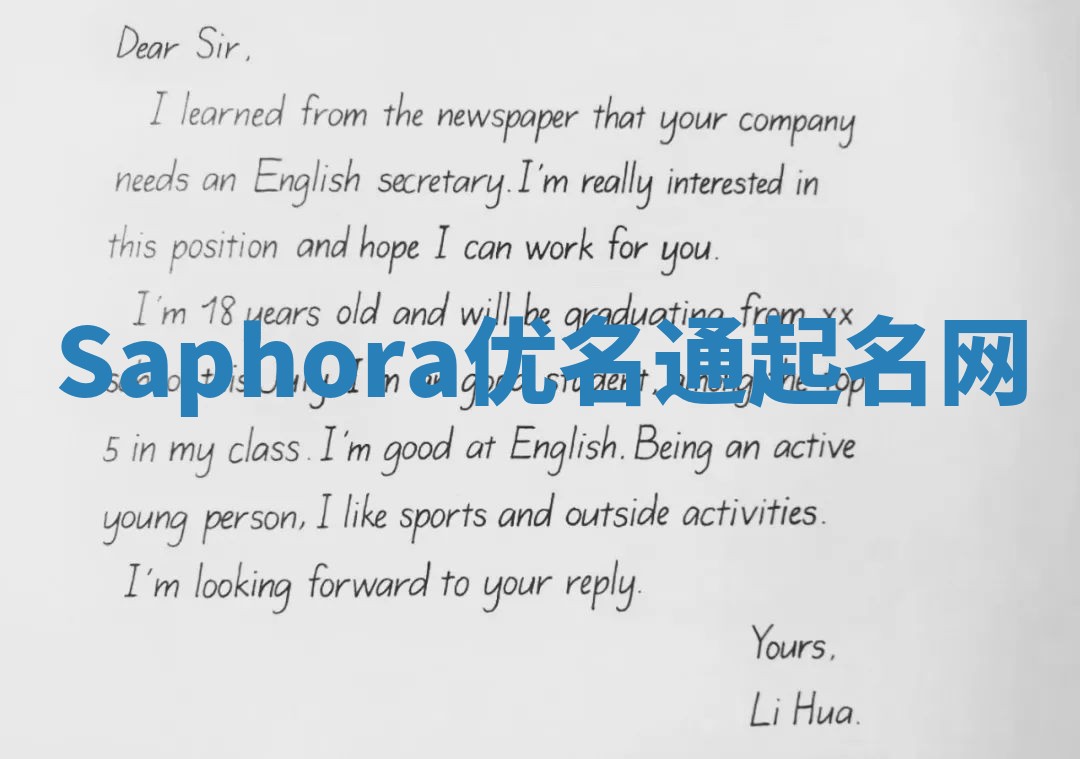 Dear Sir,
I learned from the newspaper that your company
needs an English secretary. I'm really interested in
this position and hope I can work for you.
I'm 18 years old and will be graduating from xx
Saphora优名通起名网
school this July. I'm a good student, among the top
5 in my class. I'm good at English. Being an active
young person, I like sports and outside activities.
I'm looking forward to your reply.
Yours,
Li Hua.